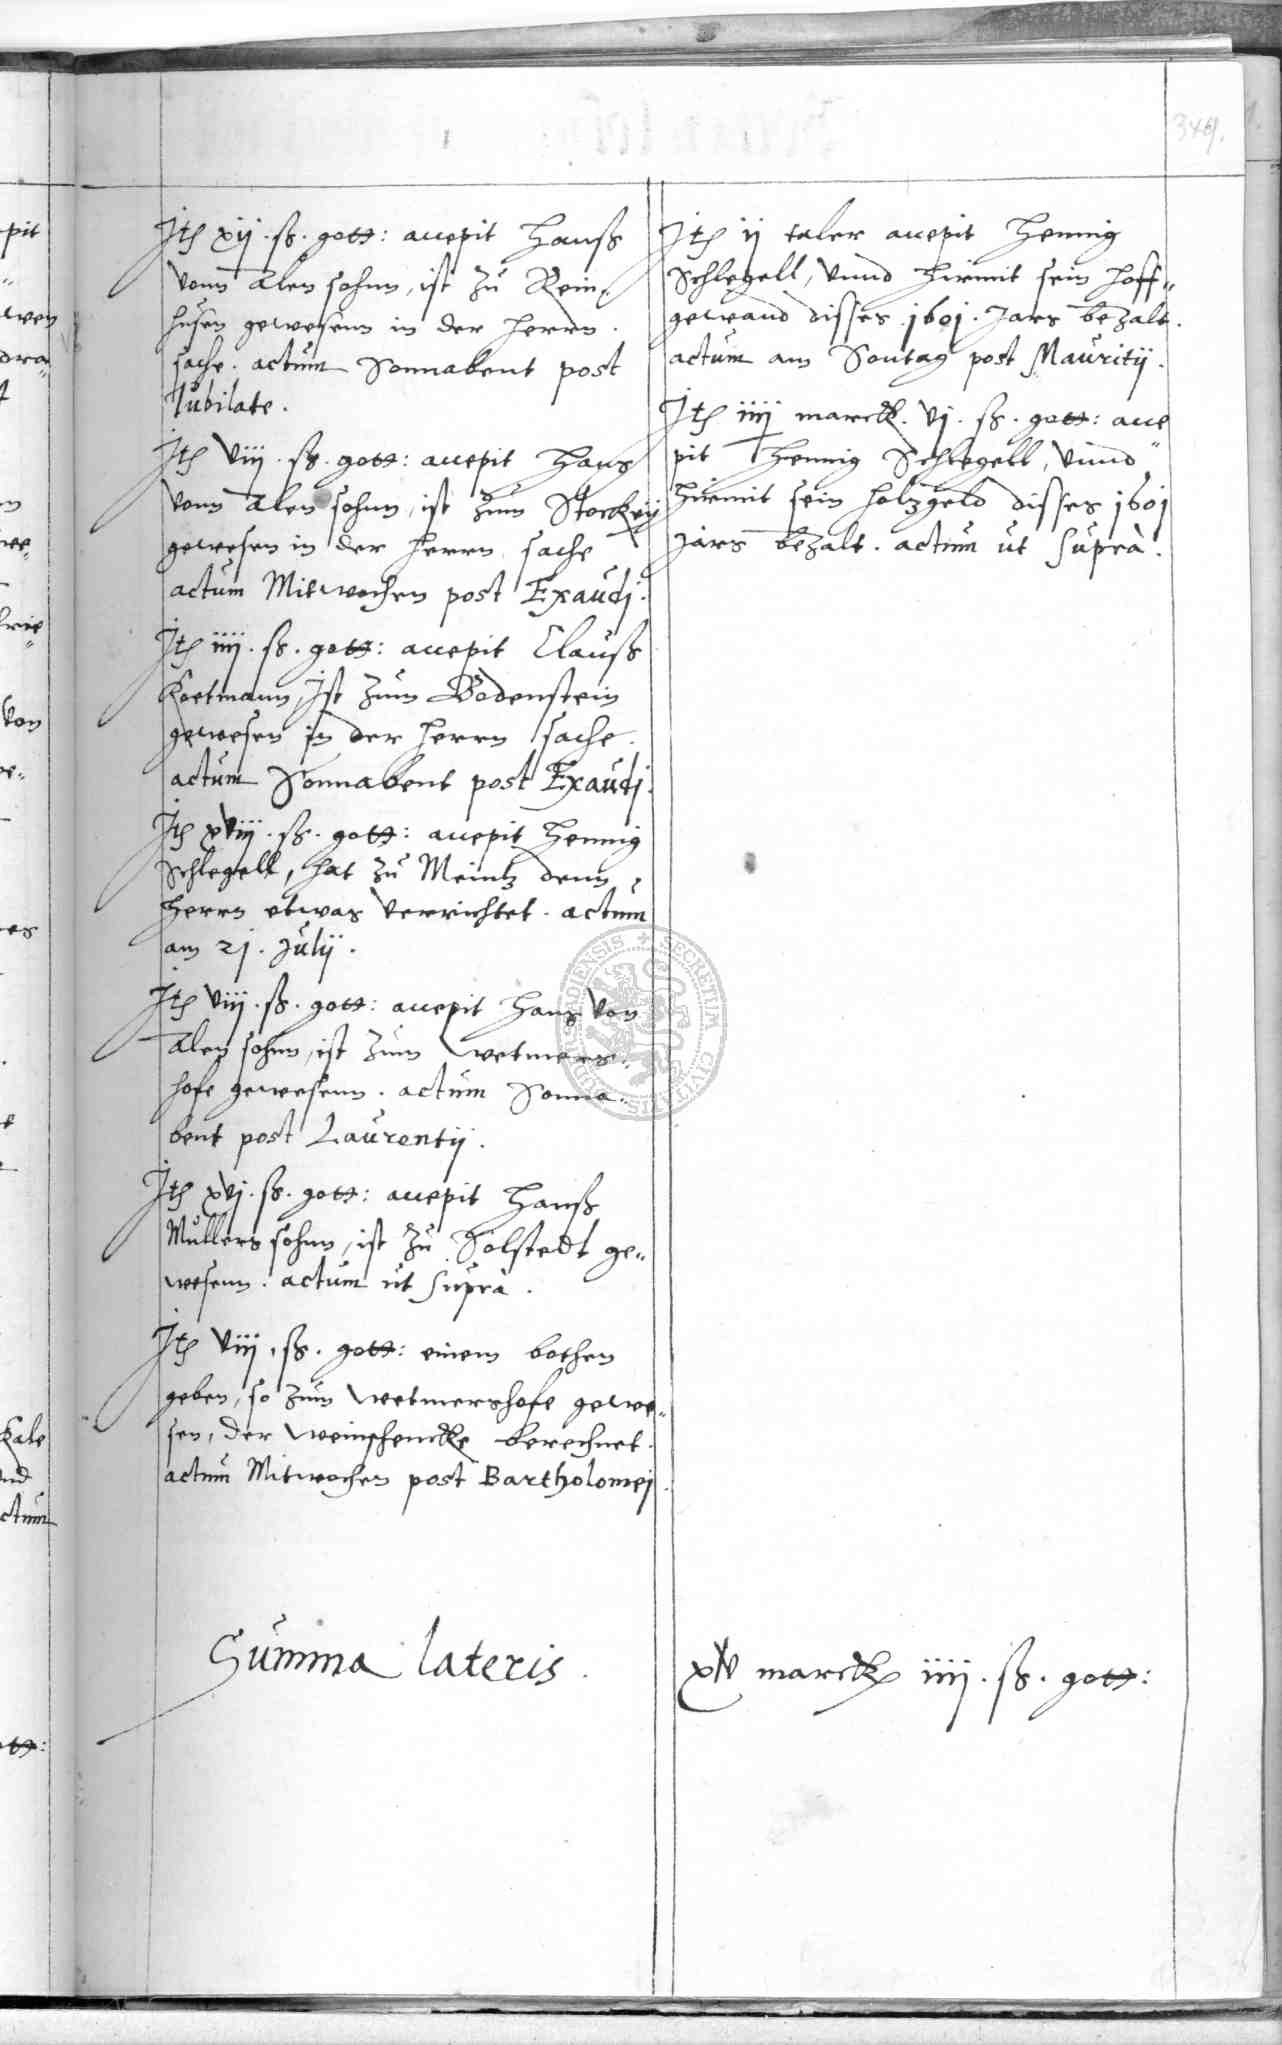 349.
Ith xij. ß. gott: accepit Hanß
vonn Alen sohnn, ist zu Rein-
husen gewesenn in der Herrn
sache. actum Sonnabent post
Iubilate.
Ith viij. ß. gott: accepit Hans
vonn Alen sohnn, ist zum Stockeÿ
gewesen in der Herrn sache
actum Mitwochen post Exaudi.
Ith iiij. ß. gott: accepit Clauß
Koetmann, Ist zum Bodenstein
gewesen in der Herrn sache.
actum Sonnabent post Exaudi.
Ith xviij. ß. gott: accepit Hennig
Schlegell, hat zu Meintz denn
Herrn etwas verrichtet. actum
am 21. Julij.
Ith viij. ß. gott: accepit Hans von
Alen sohnn, ist zum Wetmers-
hofe gewesenn. actum Sonna-
bent post Laurentij.
Ith xvj. ß. gott: accepit Hanß
Mullers sohnn, ist zu Solstedt ge-
wesenn. actum ut supra.
Ith viij. ß. gott: einem bothen
geben, so zum Wetmershofe gewe-
sen, der Weinschencke berechnet.
actum Mitwochen post Bartholomej.
Summa lateris.
Ith ij taler accepit Hennig
Schlegell, vnnd hirmit sein hoff-
gewand disses 1601. Jars bezalt.
actum am Sontag post Mauritij.
Ith iiij marck. vj. ß. gott: acce-
pit Hennig Schlegell, vnnd
hirmit sein holzgeld disses 1601
Jars bezalt. actum ut supra.
xv marck iiij. ß. gott:
SECRETUM CIVITATIS DUDERSTADIENSIS